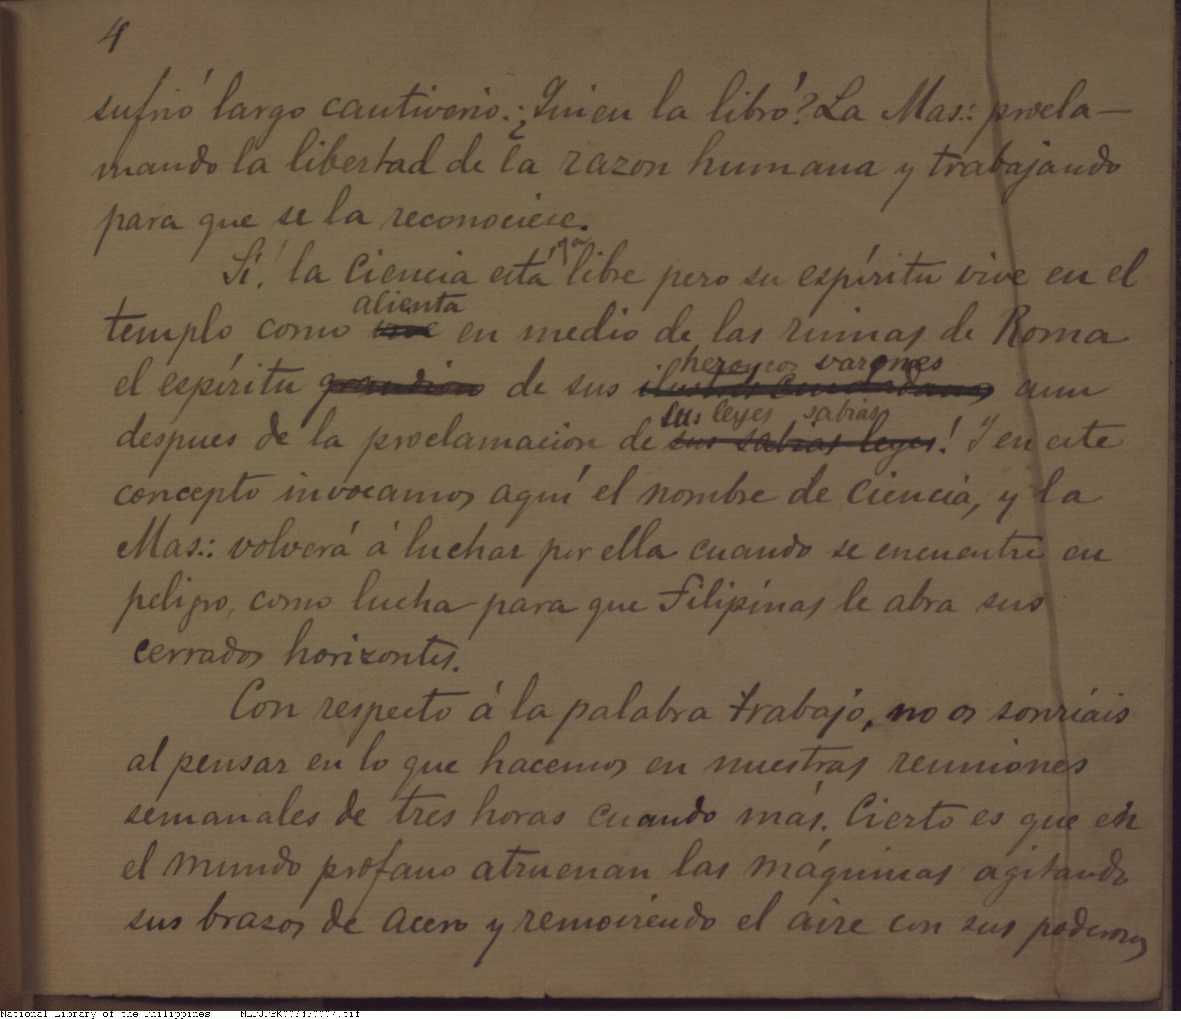 4
sufrió largo cautiverio. ¿Quien la libró? La Mas.: procla-
mando la libertad de la razon humana y trabajando
para que se la reconociese.
Sí! la ciencia está ya libre pero su espíritu vive en el
templo como alienta en medio de las ruinas de Roma
el espíritu grandioso de sus heroycos varones aun
despues de la proclamacion de sus leyes sabias sus sabias leyes! Y en este
concepto invocamos aquí el nombre de ciencia, y la
Mas.: volverá á luchar por ella cuando se encuentre en
peligro, como lucha para que Filipinas le abra sus
cerrados horizontes.
Con respecto á la palabra trabajo, no os sonriáis
al pensar en lo que hacemos en nuestras reuniones
semanales de tres horas cuando más. Cierto es que en
el mundo profano atruenan las máquinas agitando
sus brazos de acero y removiendo el aire con sus poderosos
National Library of the Philippines